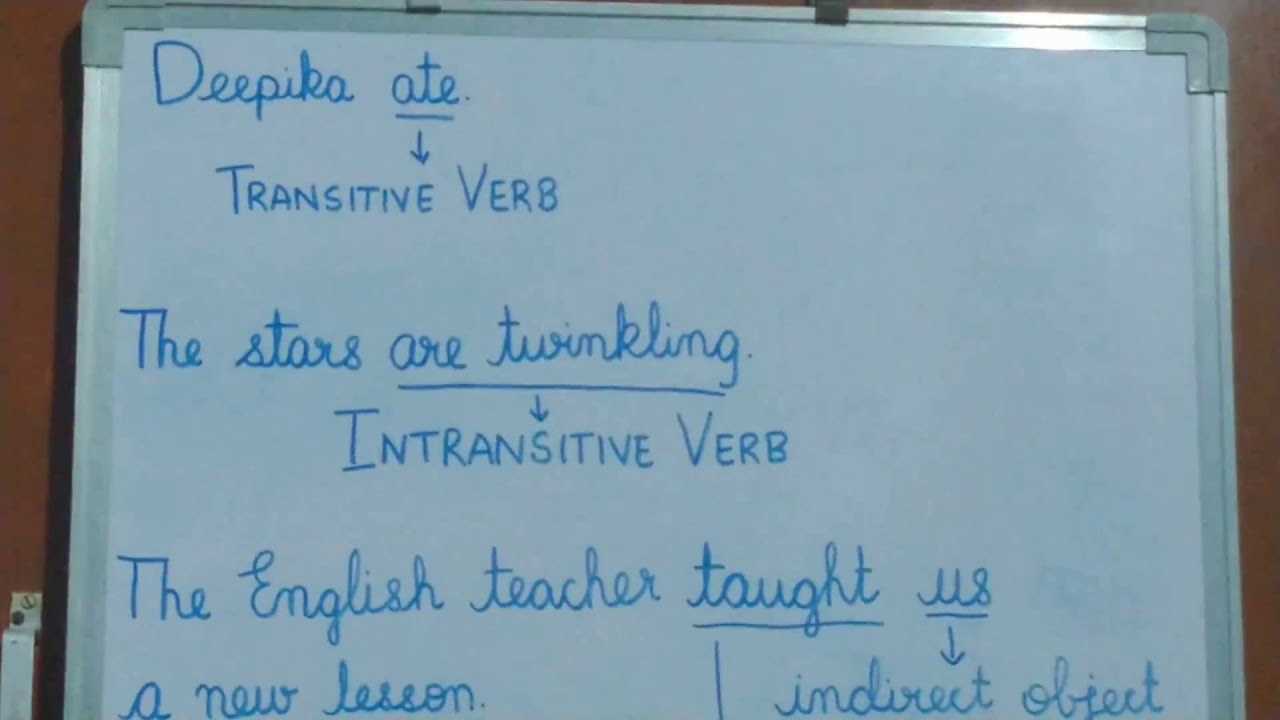 Deepika ate.
↓
TRANSITIVE VERB
The stars are twinkling.
↓
INTRANSITIVE VERB
The English teacher taught us
↓
a new lesson. | indirect object